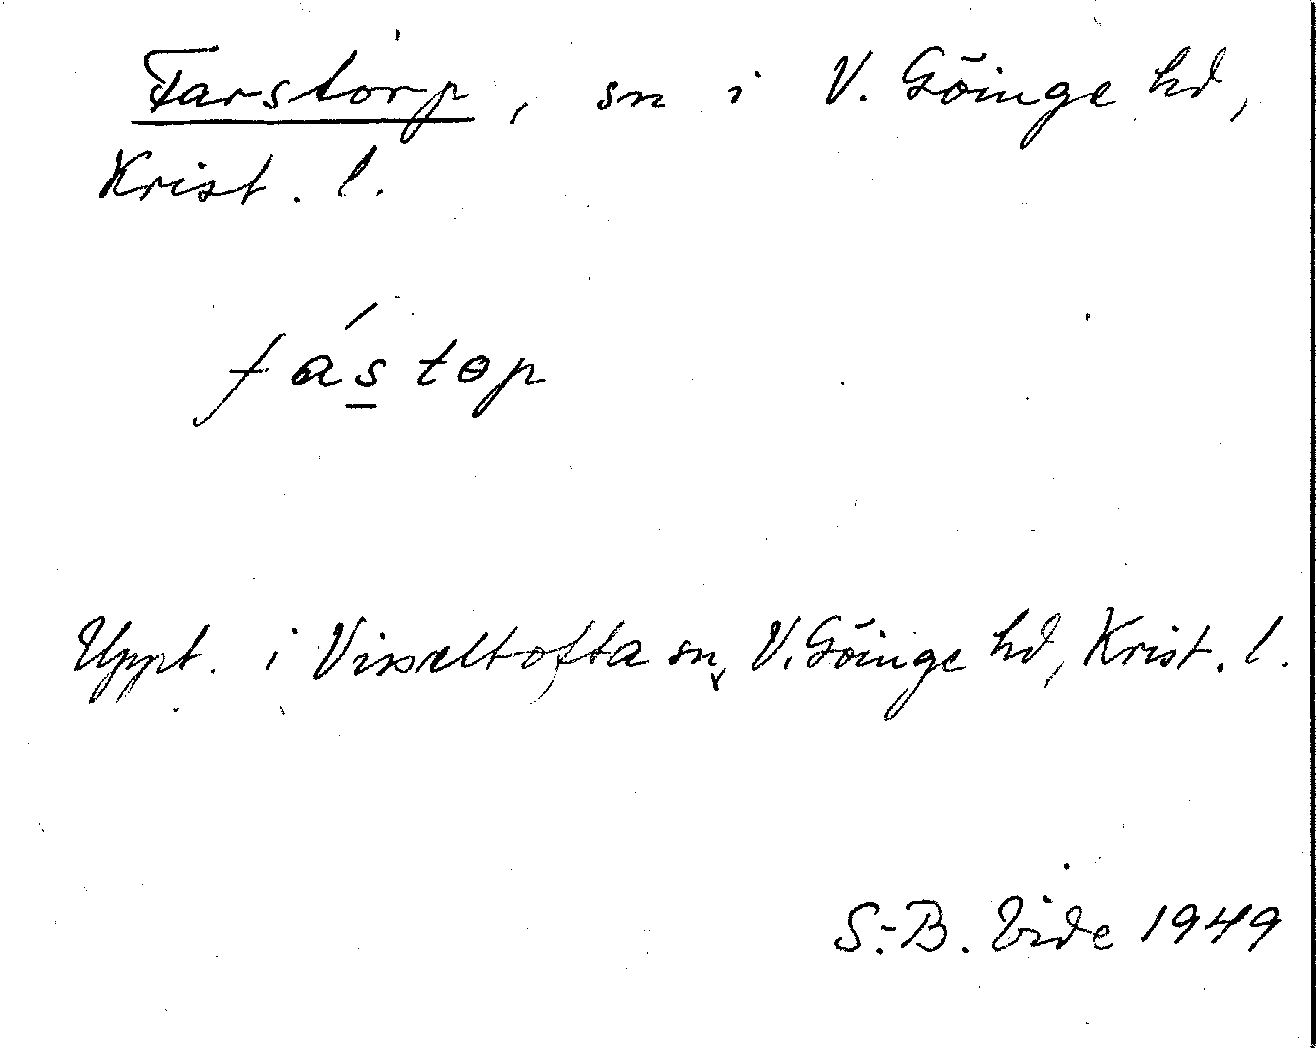 Farstorp, sn i V. Göinge hd,
Krist. l.
fás̲tɵp
Uppt. i Visseltofta sn, V. Göinge hd, Krist. l.
S.-B. Vide 1949